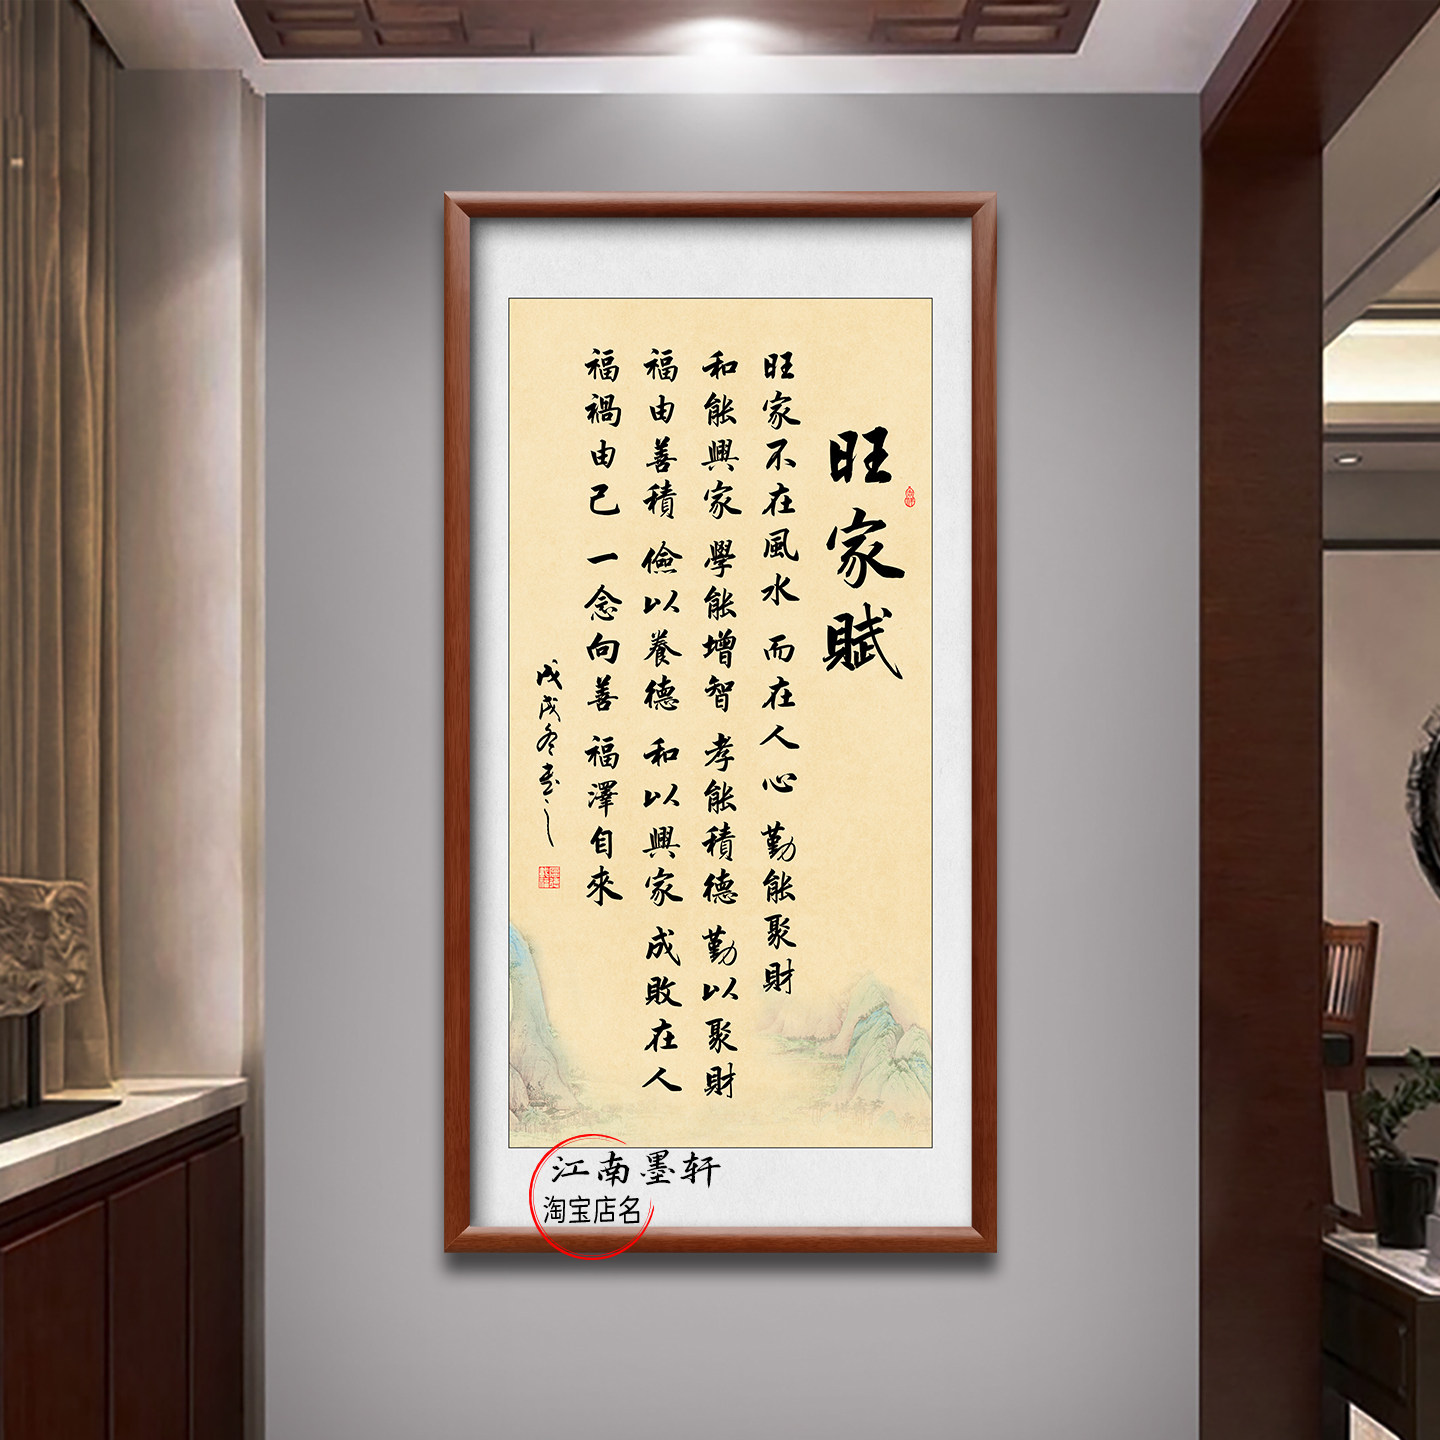 旺家賦
旺家不在風水 而在人心 勤能聚財
和能興家 學能增智 孝能積德 勤以聚財
福由善積 儉以養德 和以興家 成敗在人
福禍由己 一念向善 福澤自來
戊戌冬書之
江南墨轩
淘宝店名